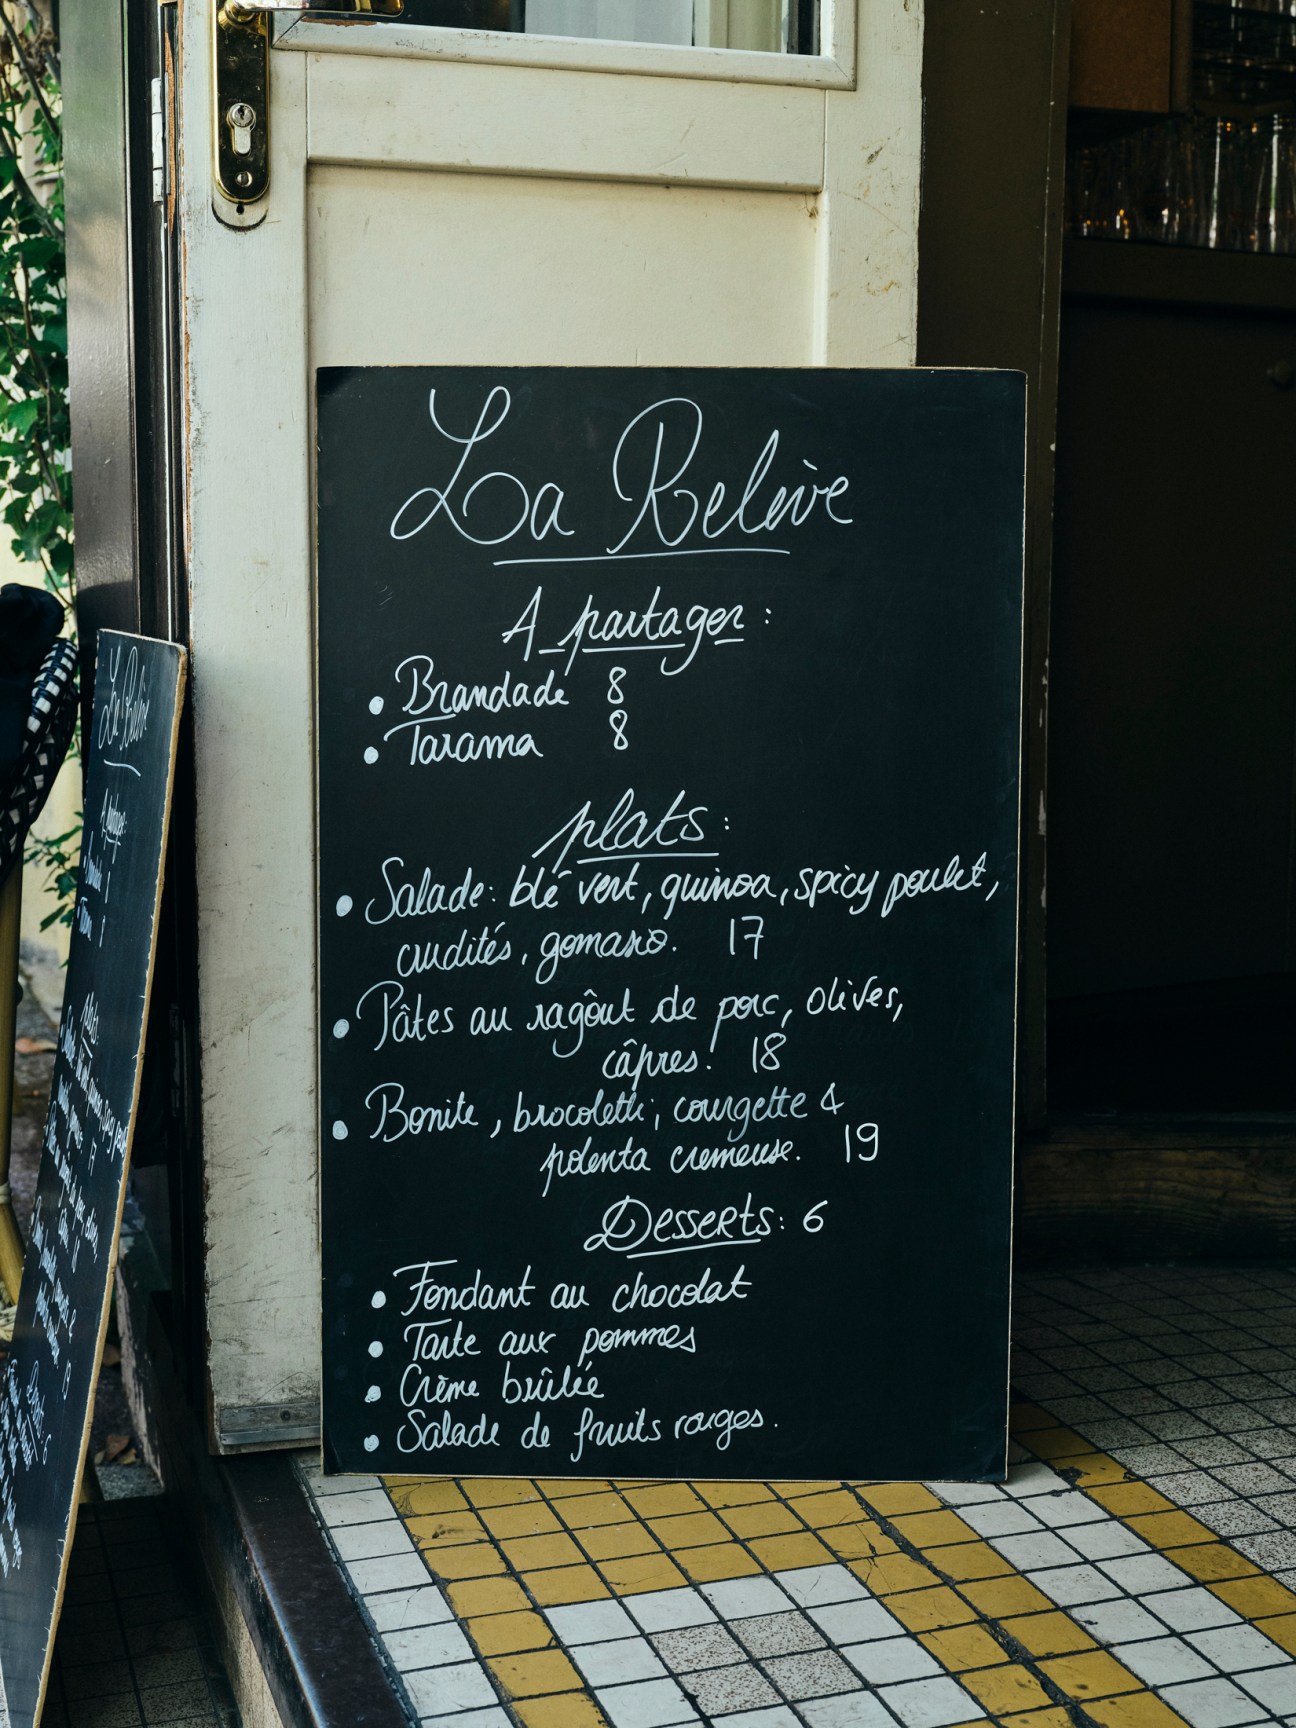 La Relève
A partager :
• Brandade 8
• Tarama 8
plats :
• Salade : blé vert, quinoa, spicy poulet,
crudités, gomasio. 17
• Pâtes au ragôut de porc, olives,
câpres. 18
• Bonite, brocoletti, courgette &
polenta cremeuse. 19
Desserts : 6
• Fondant au chocolat
• Tarte aux pommes
• Crème brûlée
• Salade de fruits rouges.
La Relève